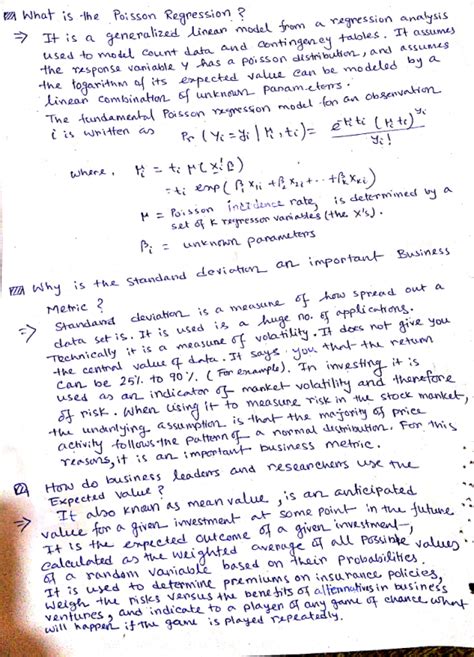 What is the Poisson Regression?
⇒ It is a generalized linear model from a regression analysis
used to model count data and contingency tables. It assumes
the response variable Y has a poisson distribution, and assumes
the logarithm of its expected value can be modeled by a
linear combination of unknown parameters.
The fundamental Poisson regression model for an observation
i is written as Pr (Yi = yi | μi, ti) = e^-μi ti (μi ti)^yi / yi!
where, μi = ti μ(x'i β)
= ti exp (β1 X1i + β2 X2i + ... + βk Xki)
μ = Poisson incidence rate, is determined by a
set of K regressor variables (the X's).
βi = unknown parameters
Why is the standard deviation an important Business
Metric?
⇒ Standard deviation is a measure of how spread out a
data set is. It is used is a huge no. of applications.
Technically it is a measure of volatility. It does not give you
the central value of data. It says you that the return
can be 25% to 90% (For example). In investing it is
used as an indicator of market volatility and therefore
of risk. When using it to measure risk in the stock market,
the underlying assumption is that the majority of price
activity follows the pattern of a normal distribution. For this
reasons, it is an important business metric.
How do business leaders and researchers use the
Expected value?
⇒ It also known as mean value, is an anticipated
value for a given investment at some point in the future.
It is the expected outcome of a given investment,
calculated as the weighted average of all possible values
of a random variable based on their probabilities.
It is used to determine premiums on insurance policies,
weigh the risks versus the benefits of alternatives in business
ventures, and indicate to a player of any game of chance what
will happen if the game is played repeatedly.